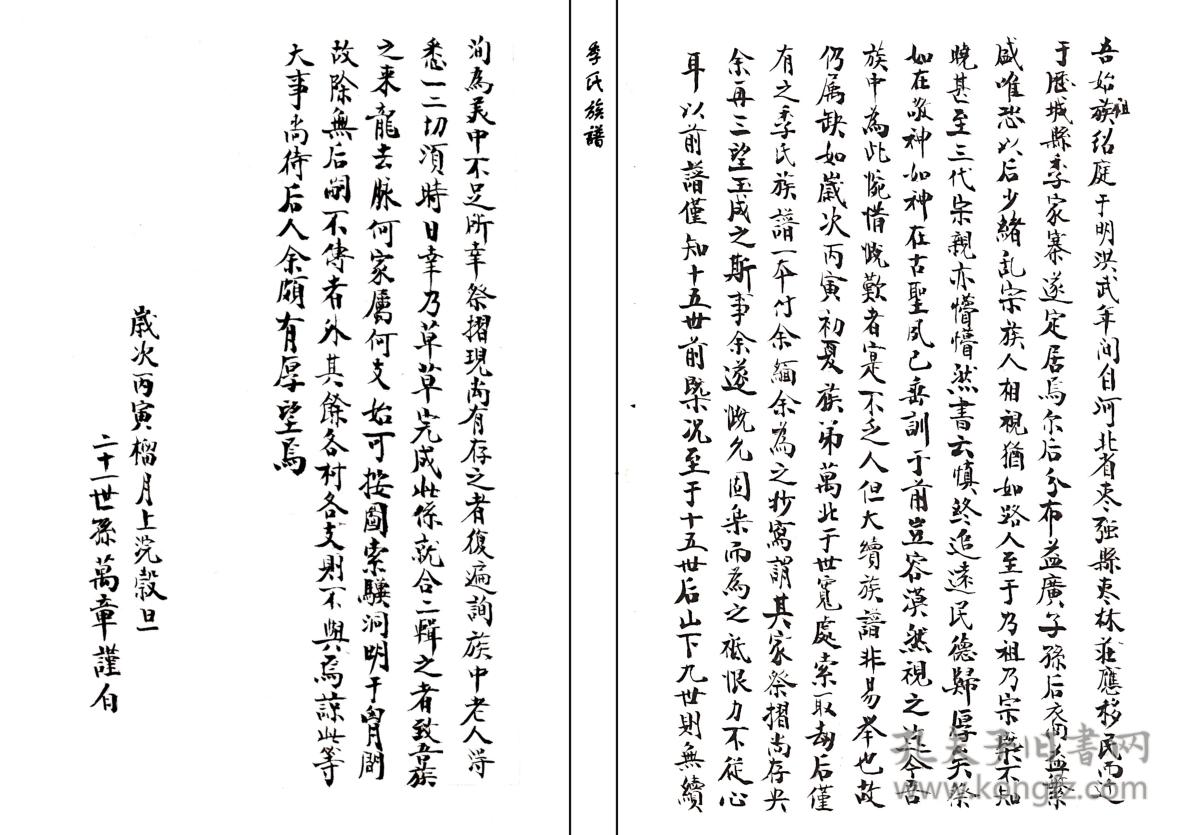 吾始族祖绍庭于明洪武年间自河北省枣强縣枣林莊應移民而迁
于歷城縣季家寨遂定居焉尔后分布益廣子孫后裔益繁
盛唯恐以后少緒乱宗族人相視猶如路人至于乃祖乃宗槩不知
曉甚至三代宗親亦懵懵然書云慎終追遠民德歸厚矣祭
如在敬神如神在古聖風已垂訓于前豈容漠然視之迄今吾
族中為此惋惜慨歎者寔不乏人但大續族譜非易举也故
仍属缺如歲次丙寅初夏族弟萬北于世寬處索取劫后僅
有之季氏族譜一本付余緬余為之抄寫謂其家祭摺尚存央
余再三望玉成之斯事余遂慨允固集而為之祗恨力不從心
耳以前譜僅知十五世前槩况至于十五世后山下九世則無續
季氏族譜
洵為美中不足所幸祭摺現尚有存之者復遍詢族中老人得
悉一二切湏時日幸乃草草完成此係就合二輯之者致吾族
之来龍去脉何家屬何支始可按圖索驥洞明于胷間
故除無后嗣不傳者外其餘各村各支則不與焉諒此等
大事尚待后人余頗有厚望焉
歲次丙寅榴月上浣穀旦
二十一世孫萬章謹白
孔夫子旧书网
www.kongfz.com